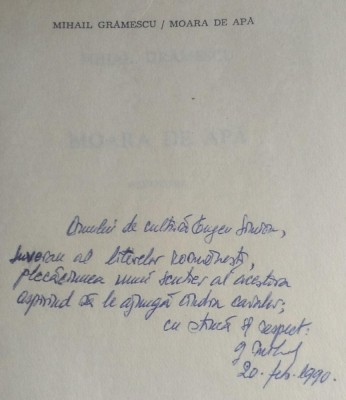 MIHAIL GRĂMESCU / MOARA DE APĂ
MOARA DE APĂ
Omului de cultură Eugen Simion,
suveran al literelor românești,
plecăciunea unui scutier al acestora
aspirînd să le ajungă cîndva cavaler,
cu stimă și respect:
20. feb. 1990.